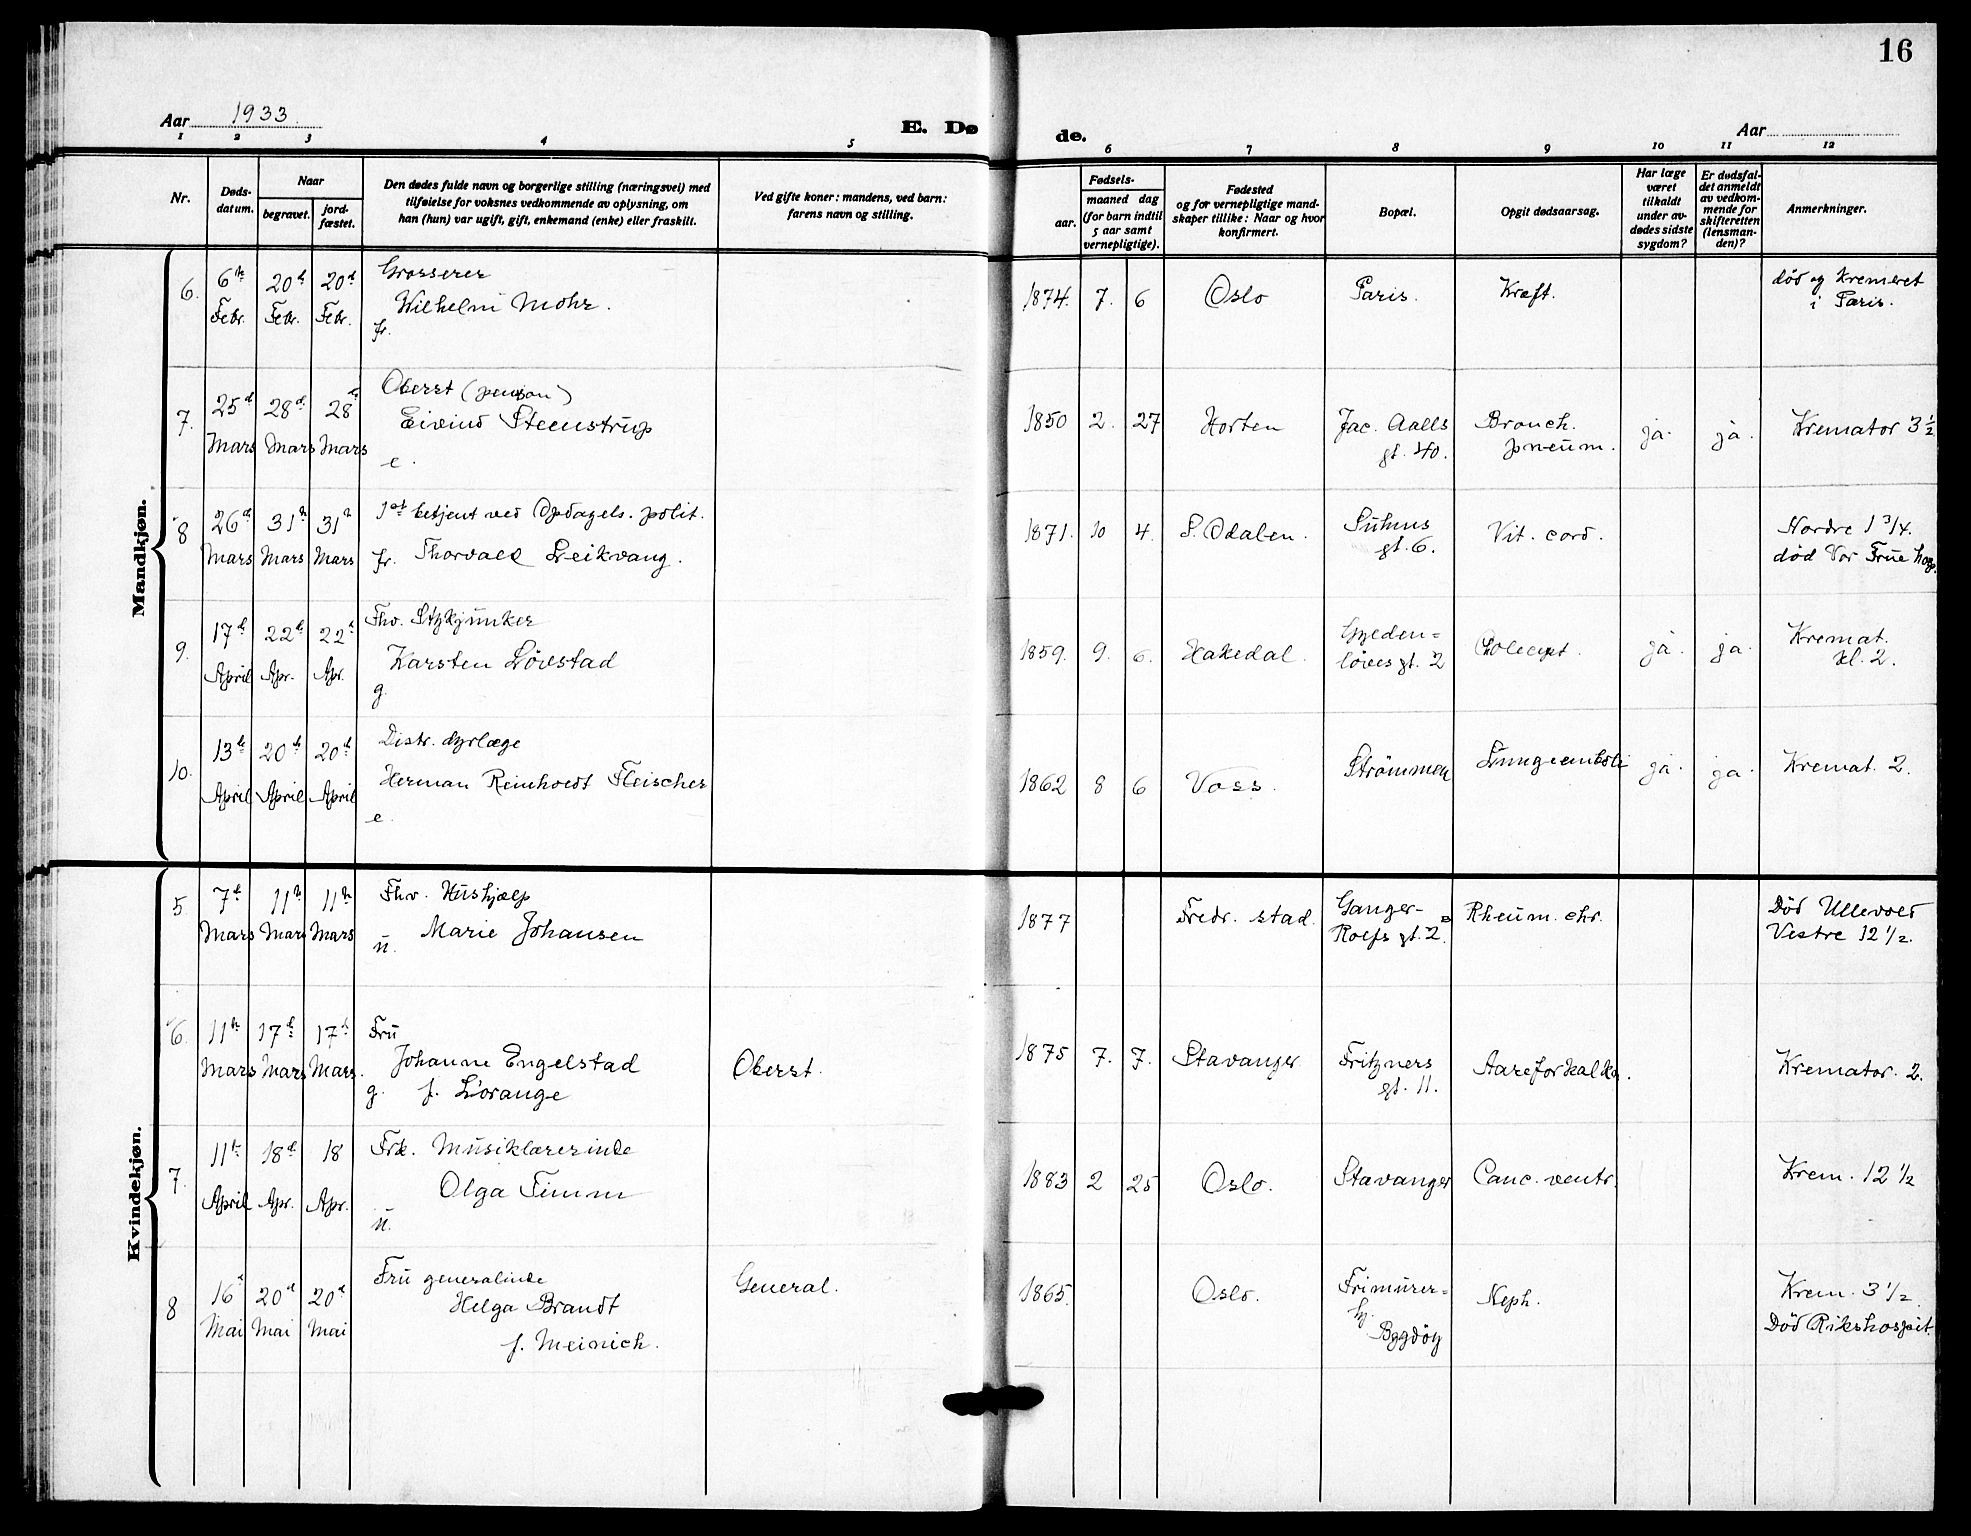 16
Aar 1933.
E. Dø
de.
Aar
1 2 3 4 5 6 7 8 9 10 11 12
Nr.
Døds-
datum.
Naar
begravet.
jord-
fæstet.
Den dødes fulde navn og borgerlige stilling (næringsvei) med
tilføielse for voksnes vedkommende av oplysning, om
han (hun) var ugift, gift, enkemand (enke) eller fraskilt.
Ved gifte koner: mandens, ved barn:
farens navn og stilling.
Fødsels-
aar.
maaned dag
(for barn indtil
5 aar samt
vernepligtige).
Fødested
og for vernepligtige mand-
skaper tillike: Naar og hvor
konfirmert.
Bopæl.
Opgit dødsaarsag.
Har læge
været
tilkaldt
under av-
dødes sidste
sygdom?
Er dødsfal-
det anmeldt
av vedkom-
mende for
skifteretten
(lensman-
den)?
Anmerkninger.
Mandkjøn.
6. 6te Febr. 20d Febr. 20d Febr.
Grosserer
Wilhelm Mohr.
fr.
1874. 7. 6 Oslo Paris. Kræft.
død og Kremeret
i Paris.
7. 25d Mars 28d Mars 28d Mars
Oberst (pension)
Eivind Steenstrup
e.
1850 2. 27 Horten
Jac. Aalls
gt. 40.
Bronch.
pneum.
ja. ja.
Kremator 3 1/2
8 26d Mars 31te Mars 31te Mars
1ste betjent ved Opdagels. polit.
fr. Thorvald Leikvang.
1871. 10 4. S. Odalen.
Suhms
gt. 6.
Vit. cord.
Nordre 1 3/4.
død Vor Frue hosp.
9. 17d April 22d Apr. 22d Apr.
Fhv. Stykjunker
Karsten Løvstad
g.
1859. 9. 6. Hakedal.
Gylden=
løves gt. 2
ja. ja.
Kremat.
kl. 2.
10. 13de April 20d April 20d April
Distr. dyrlæge
Herman Reinholdt Fleischer
e.
1862 8 6 Voss.
Strømmen
Lungeemboli
ja. ja.
Kremat. 2.
Kvindekjøn.
5 7d Mars 11te Mars 11te Mars
Fhv. Hushjælp
Marie Johansen
u.
1877 Fredr. stad.
Ganger-
Rolfs gt. 2.
Rheum. chr.
Død Ullevold
Vestre 12 1/2.
6. 11te Mars 17d Mars 17d Mars.
Fru
Johanne Engelstad
g. f. L'orange
Oberst.
1875 7. 7. Stavanger
Fritzners
gt. 11.
Aareforkalkn.
Kremator. 2.
7. 11te April 18d Apr. 18 Apr.
Frk. Musiklærerinde
Olga Timm
u.
1883 2 25 Oslo. Stavanger Canc. ventr.
Krem. 12 1/2
8 16d Mai 20d Mai 20d Mai
Fru generalinde
Helga Brandt
f. Meinich.
General.
1865. Oslo.
Frimurer=
hj.
Bygdøy
Neph.
Krem. 3 1/2.
Død Rikshospit.